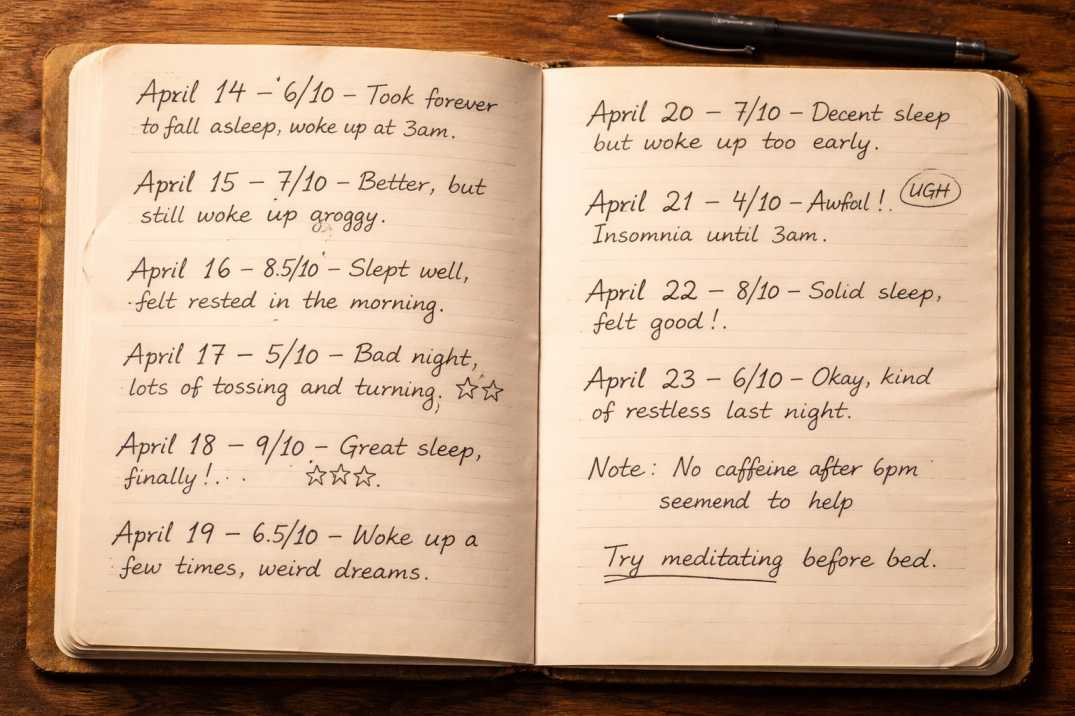 April 14 – 6/10 – Took forever
to fall asleep, woke up at 3am.
April 15 – 7/10 – Better, but
still woke up groggy.
April 16 – 8.5/10 – Slept well,
felt rested in the morning.
April 17 – 5/10 – Bad night,
lots of tossing and turning. ☆☆
April 18 – 9/10 – Great sleep,
finally!.. ☆☆☆.
April 19 – 6.5/10 – Woke up a
few times, weird dreams.
April 20 – 7/10 – Decent sleep
but woke up too early.
April 21 – 4/10 – Awful!. UGH
Insomnia until 3am.
April 22 – 8/10 – Solid sleep,
felt good!.
April 23 – 6/10 – Okay, kind
of restless last night.
Note: No caffeine after 6pm
seemend to help
Try meditating before bed.